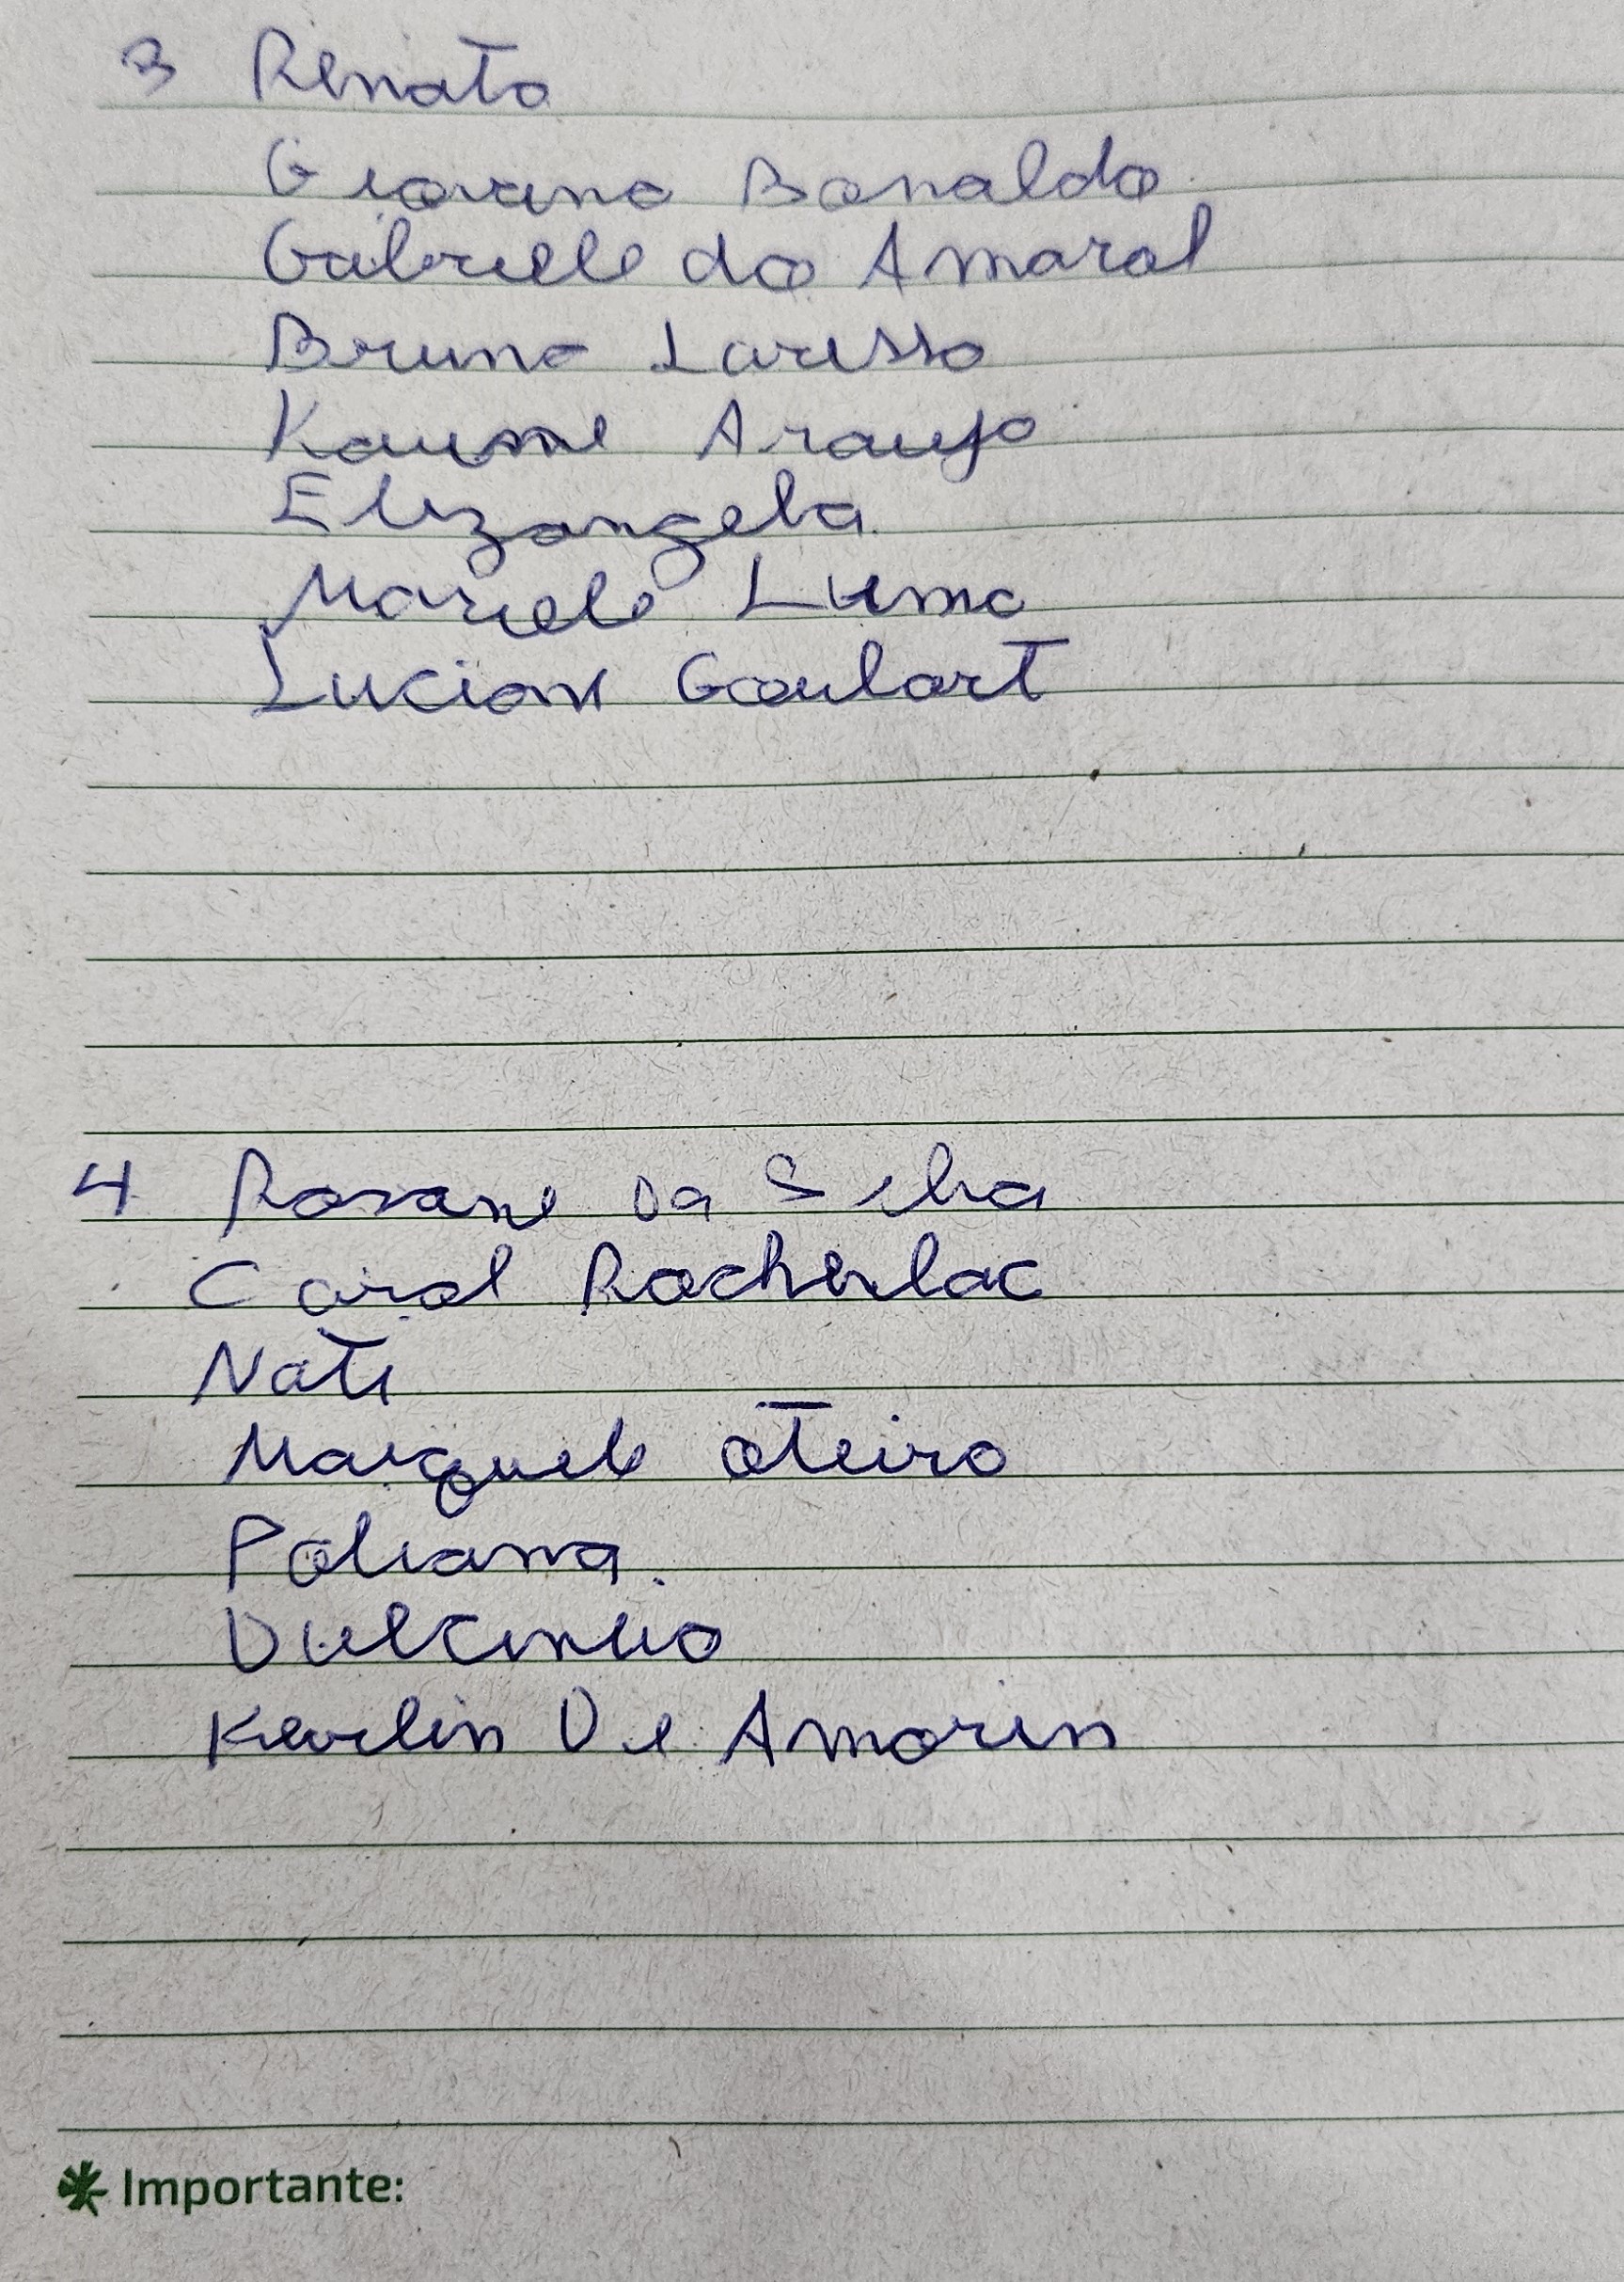 3 Renato
Giovana Bonaldo
Gabriele do Amaral
Bruna Larissa
Araujo
Elizangela
Mariele Lima
Luciane Goulart
4 Rosane Da Silva
Carol
Nati
Maiquele oteiro
Poliana.
Dulcineia
De Amorin
Importante: